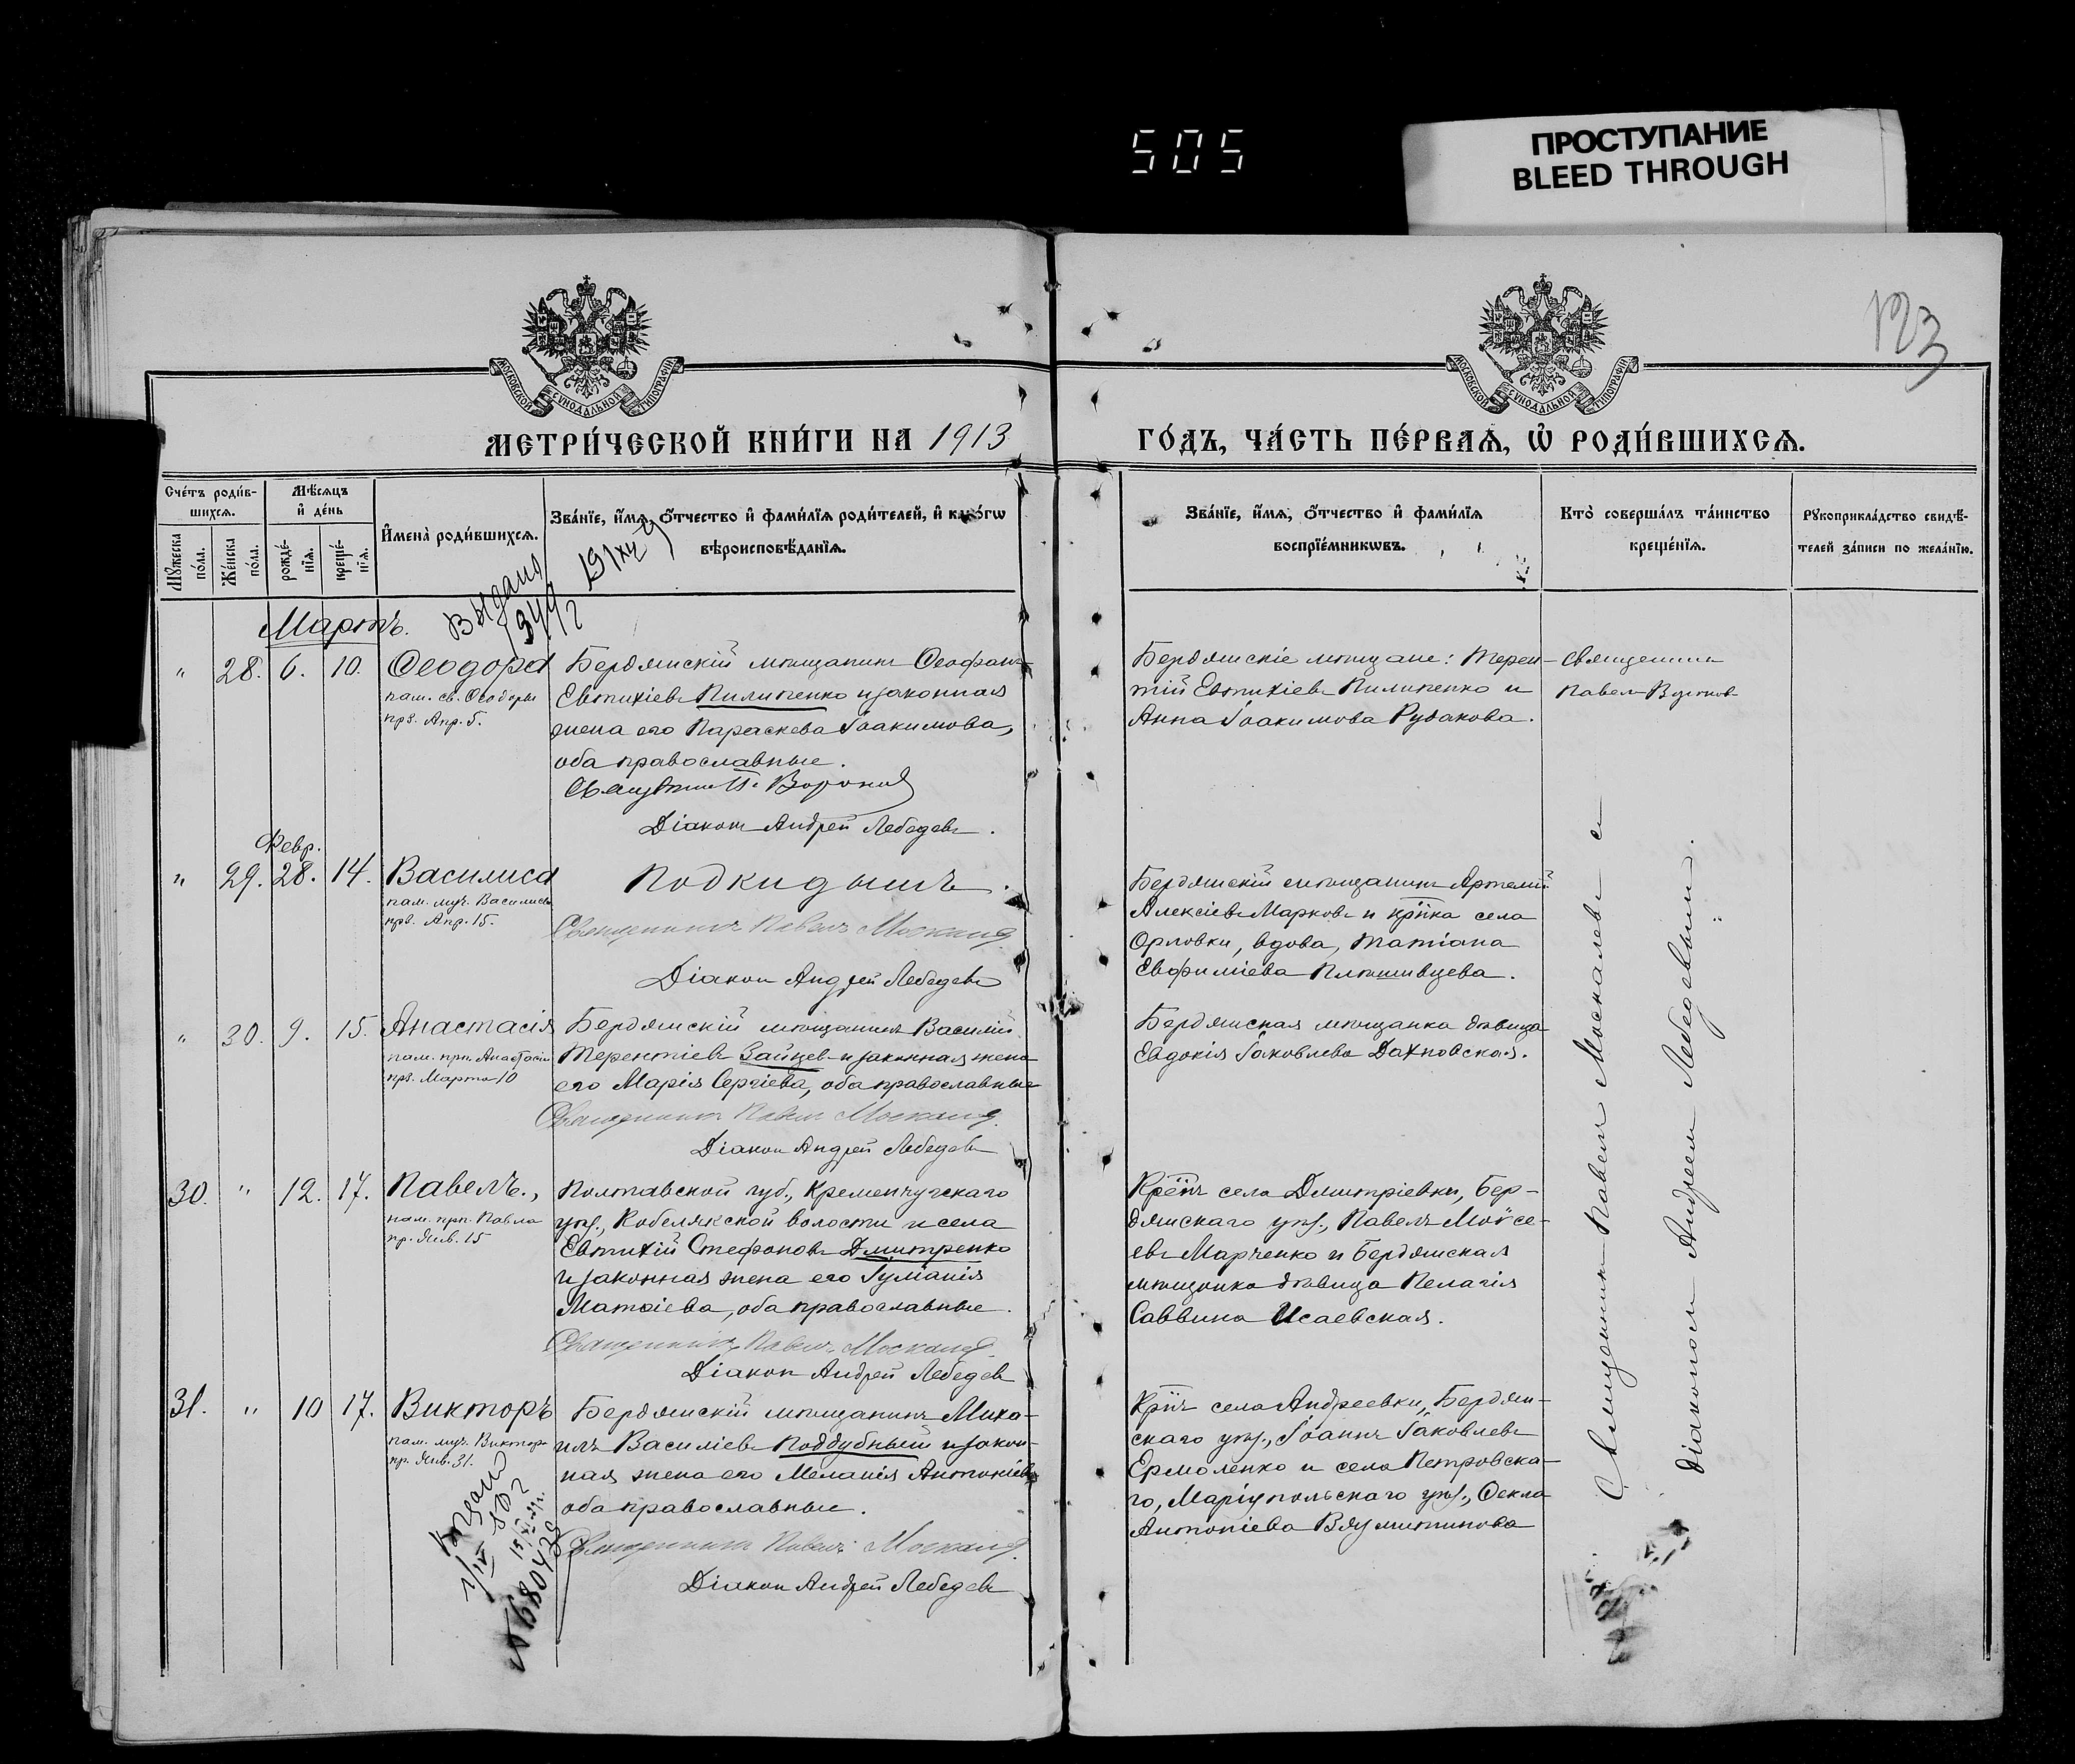 505
ПРОСТУПАНИЕ
BLEED THROUGH
123
МОСКОВСКОЙ СѴНОДАЛЬНОЙ ТИПОГРАФІИ
МОСКОВСКОЙ СѴНОДАЛЬНОЙ ТИПОГРАФІИ
МЕТРИ́ЧЕСКОЙ КНИ́ГИ НА 1913
ГО́ДЪ, ЧА́СТЬ ПЕ́РВАѦ, Ѡ РОДИ́ВШИХСѦ.
Сче́тъ роди́в-
шихсѧ.
Мꙋжеска по́ла.
Же́нска по́ла.
Мѣ́сѧцъ
и҆ де́нь
рожде́-
нїѧ.
креще́-
нїѧ.
И҆мена̀ роди́вшихсѧ.
Зва́нїе, и҆́мѧ, ѻ҆́тчество и҆ фами́лїѧ роди́телей, и҆ како́гѡ
вѣроисповѣ́данїѧ.
Зва́нїе, и҆́мѧ, ѻ҆́тчество и҆ фами́лїѧ
воспрїе́мникѡвъ.
Кто̀ соверша́лъ та́инство
креще́нїѧ.
Рꙋкоприкла́дство свидѣ́-
телей за́писи по жела́нїю.
Выдано
Мартъ.
" 28. 6. 10. Ѳеодора
пам. св. Ѳеодоры
прз. Апр. 5.
Бердянскій мѣщанинъ Ѳеофанъ
Евтихіевъ Пилипенко и законная
жена его Параскева Іоакимова,
оба православные.
Діаконъ Андрей Лебедевъ.
Бердянскіе мѣщане: Терен-
тій Евтихіевъ Пилипенко и
Анна Іоакимова Рудакова.
Священникъ
Павелъ
Февр.
" 29. 28. 14. Василиса
пам. муч. Василисы
прз. Апр. 15.
Подкидышъ.
Священникъ Павелъ Москалевъ
Діаконъ Андрей Лебедевъ
Бердянскій мѣщанинъ Артемій
Алексіевъ Марковъ и кр҃нка села
Орловки, вдова, Татіана
Евфиміева
" 30. 9. 15. Анастасія
пам. прп. Анастасіи
прз. Марта 10
Бердянскій мѣщанинъ Василій
Терентіевъ Зайцевъ и законная жена
его Марія Сергіева, оба православные
Священникъ Павелъ Москалевъ
Діаконъ Андрей Лебедевъ
Бердянская мѣщанка дѣвица
Евдокія Іаковлева Дахновская.
30. " 12. 17. Павелъ.,
пам. прп. Павла
пр. Янв. 15
Полтавской губ., Кременчугскаго
уѣз., Кобелякской волости и села
Евтихій Стефановъ Дмитренко
и законная жена его Іуліанія
Матѳіева, оба православные.
Священникъ Павелъ Москалевъ
Діаконъ Андрей Лебедевъ
села Дмитріевки, Бер-
дянскаго уѣз., Павелъ Моѵсе-
евъ Марченко и Бердянская
мѣщанка дѣвица Пелагія
Саввина Исаевская.
31. " 10 17. Викторъ
пам. муч. Виктора
пр. Янв. 31.
Бердянскій мѣщанинъ Миха-
илъ Василіевъ Поддубный и закон-
ная жена его Меланія Антоніева
оба православные.
Священникъ Павелъ Москалевъ
Діаконъ Андрей Лебедевъ
села Андреевки, Бердян-
скаго уѣз., Іоаннъ Іаковлевъ
Ермоленко и села Петровска-
го, Маріупольскаго уѣз., Ѳекла
Антоніева
Священникъ Павелъ Москалевъ съ
діакономъ Андреемъ Лебедевымъ.